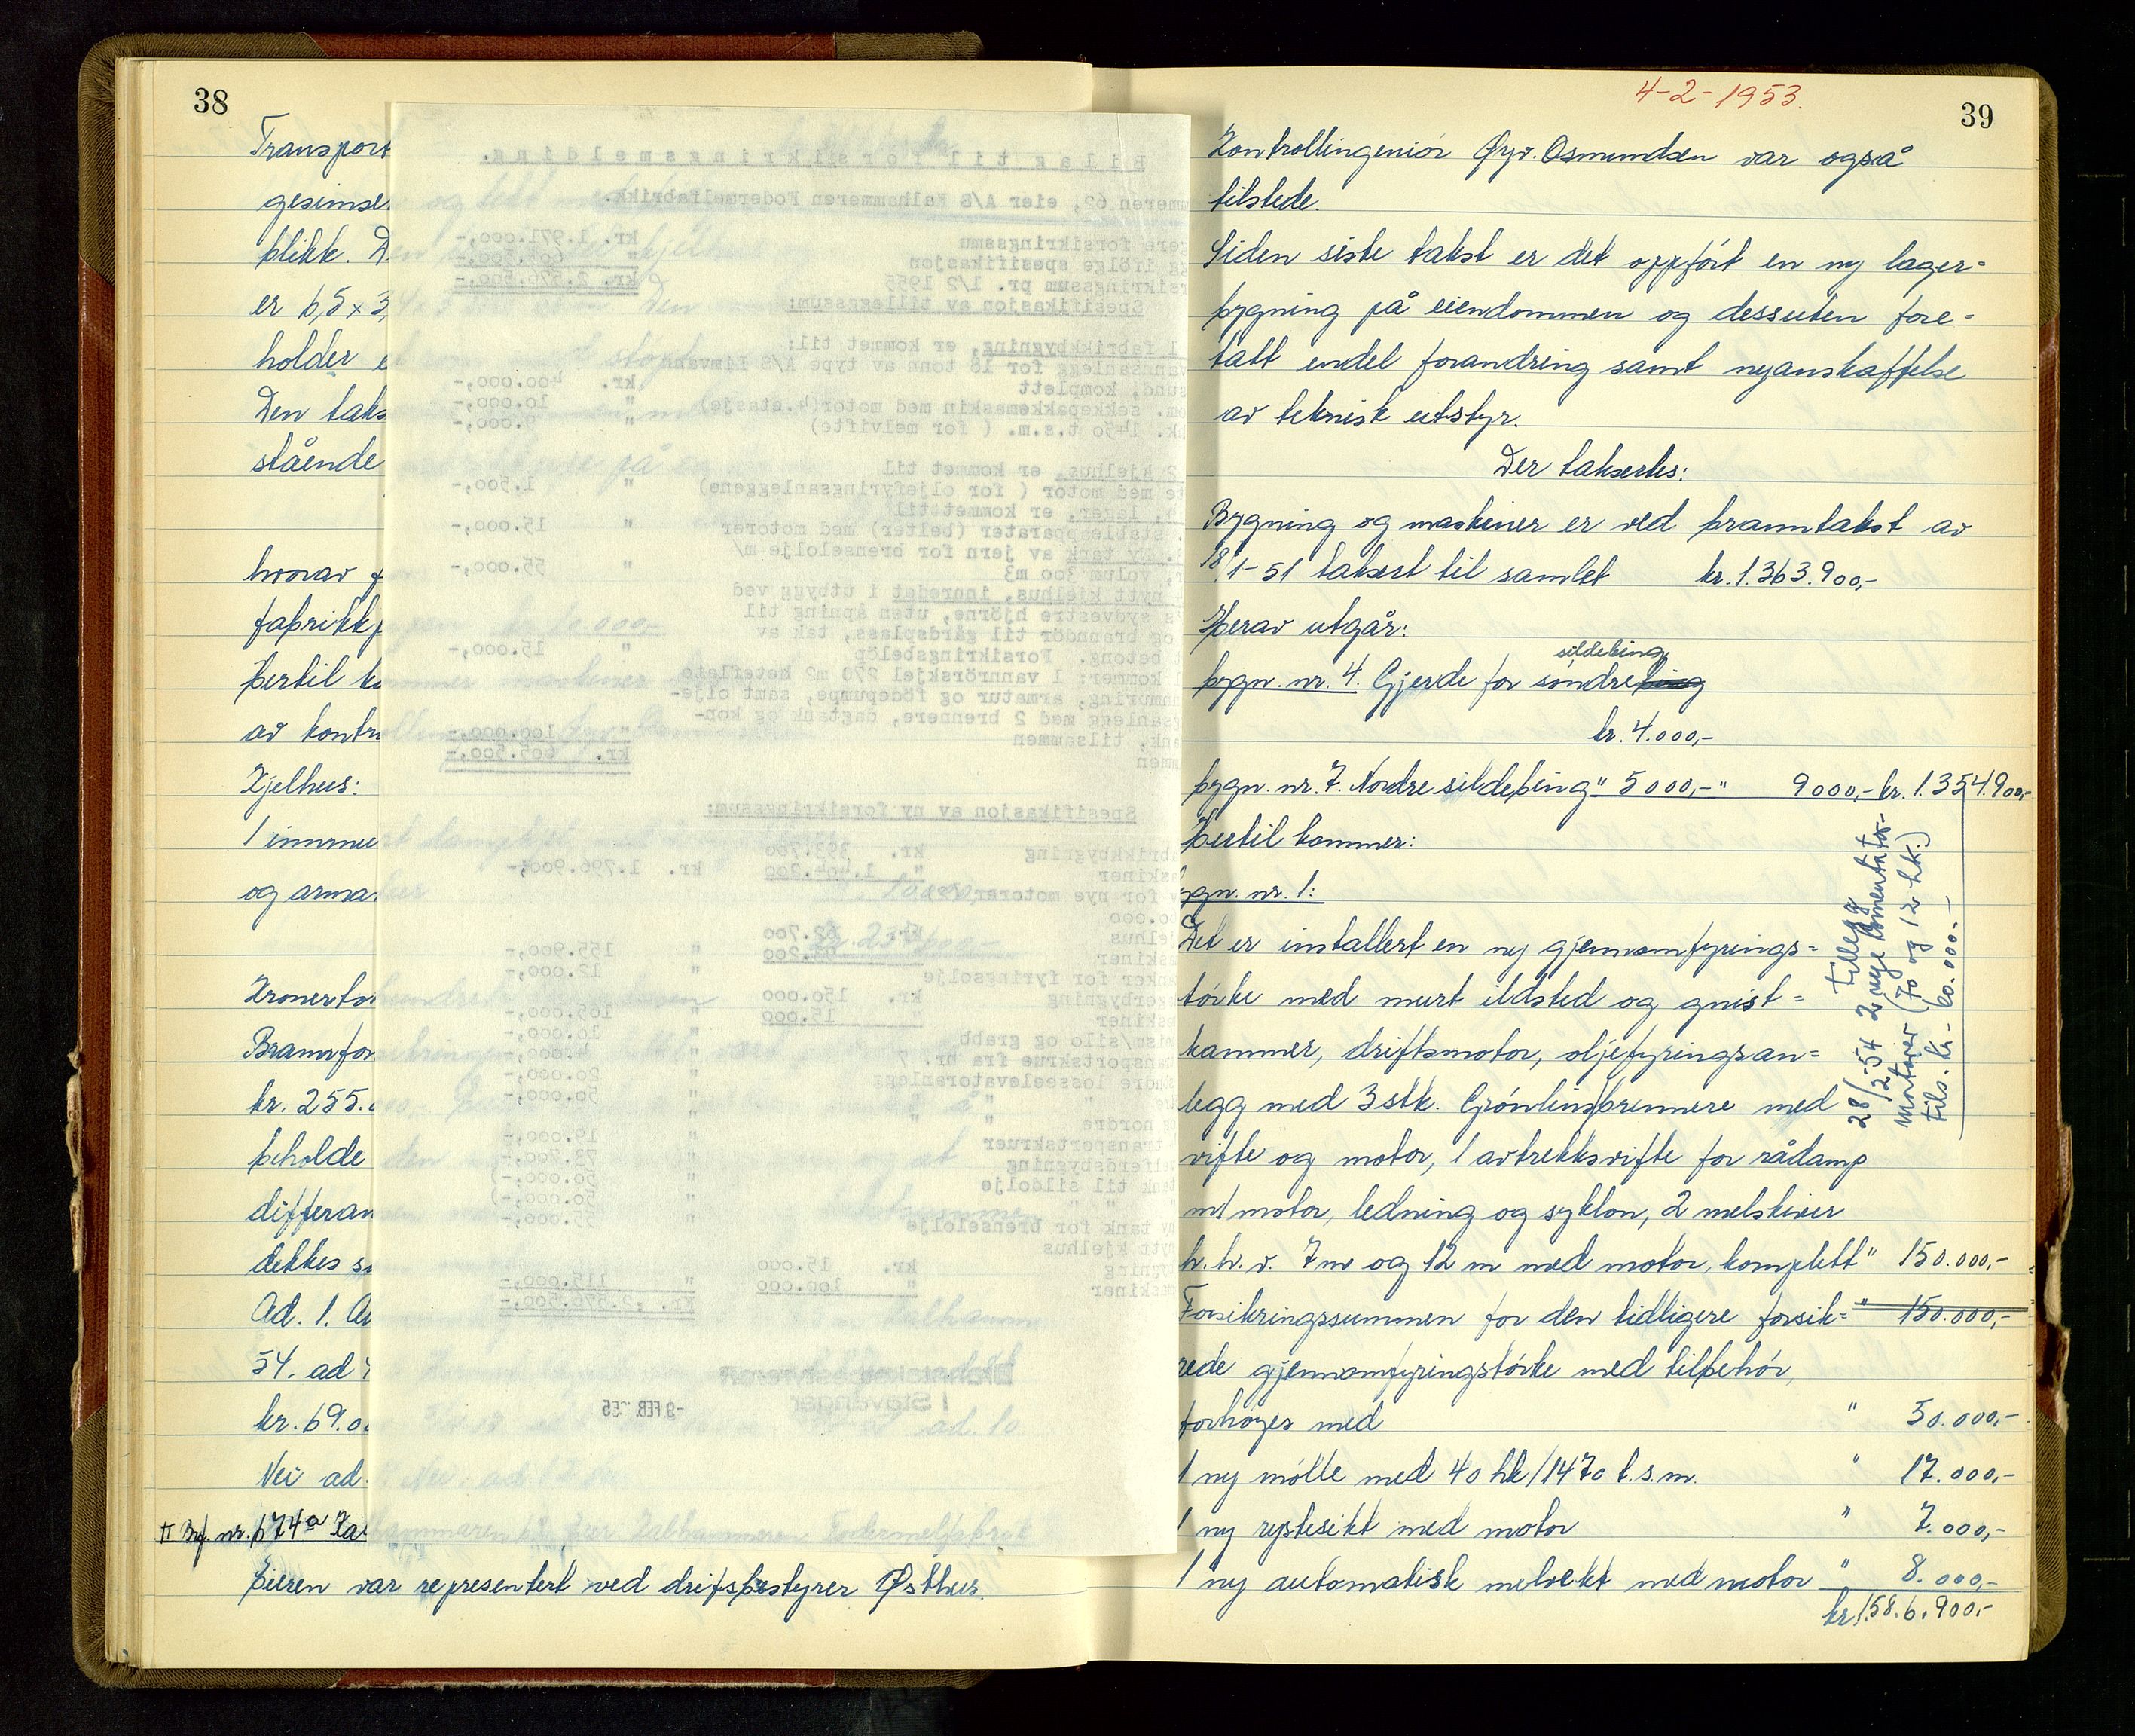 38
Transport
gesimse
blikk. D
er 6,5 x 3,
holder e
Den taks
stående
hvorav f
fabrikk
hertil ko
av kontr
Kjelhus:
1 innmu
og arma
Kroner to
Brannfor
kr. 255.
beholde
differan
dekkes s
Ad. 1. A
54. ad
kr. 69.0
Nei ad.
II Brf. nr. 674a Kal
Eieren var representert ved driftsbestyrer Østhus.
Bilag til forsikringsmelding.
mmeren 62, eier A/S Kalhammeren Fodermelfabrikk.
gere forsikringssum kr. 1.971.000,-
gg ifölge spesifikasjon " 605.500,-
rsikringssum pr. 1/2 1955 kr. 2.576.500,-
Spesifikasjon av tilleggssum:
1 fabrikkbygning, er kommet til:
vannsanlegg for 18 tonn av type A/S Limvann
sund, komplett kr. 400.000,-
om. sekkepakkemaskin med motor(4.etasje) " 10.000,-
hk. 1450 t.s.m. ( for melvifte) " 9.000,-
2 kjelhus, er kommet til
te med motor ( for oljefyringsanleggene) " 1.500,-
lager, er kommet til
stableapparater (belter) med motorer " 15.000,-
Ny tank av jern for brenselolje m/
r, volum 300 m3 " 55.000,-
nytt kjelhus, innredet i utbygg ved
s sydvestre hjörne, uten åpning til
og branndör til gårdsplass, tak av
betong. Forsikringsbelöp " 15.000,-
komer: 1 vannrörskjel 270 m2 heteflate
nmuring, armatur og födepumpe, samt olje-
sanlegg med 2 brennere, dagtank og kon-
nk, tilsammen " 100.000,-
men kr. 605.500,-
Spesifikasjon av ny forsikringssum:
brikkbygning kr. 393.700
skiner " 1.404.200 kr. 1.796.900,-
for nye motorer
o.000
jelhus kr. 62.700
skiner " 93.200 " 155.900,-
anker for fyringsolje " 12.000,-
erbygning kr. 150.000
skiner " 15.000 " 165.000,-
ism/silo og grabb " 10.000,-
ansportskrue fra nr. 7 " 4.000,-
ndre losseelevatoranlegg " 20.000,-
" 50.000,-
g nordre
transportskruer " 19.000,-
elferdsbygning " 73.700,-
tank til sildolje " 50.000,-)
" " " " 50.000,-)
ny tank for brenselolje " 55.000,-
nytt kjelhus
ygning kr. 15.000
maskiner " 100.000 " 115.000,-
Kr. 2.576.500,-
Branntakstbestyreren
i Stavanger
-9 FEB. 55
4-2-1953.
39
Kontrollingeniør Øyv. Osmundsen var også
tilstede.
Siden siste takst er det oppført en ny lager=
bygning på eiendommen og dessuten fore=
tatt endel forandring samt nyanskaffelse
av teknisk utstyr.
Der taksertes:
Bygning og maskiner er ved branntakst av
18/1-51 taksert til samlet kr. 1.363.900,-
Herav utgår:
sildebing
bygn. nr. 4. Gjerde for søndre bing
kr. 4.000,-
bygn. nr. 7. Nordre sildebing " 5000,- " 9000,- kr. 1.354.900,-
Hertil kommer:
bygn. nr. 1:
Det er installert en ny gjennomfyrings=
tørke med murt ildsted og gnist=
kammer, driftsmotor, oljefyringsan=
legg med 3 stk. Grønlins brennere med
vifte og motor, 1 avtrekksvifte for rådamp
m/ motor, ledning og syklon, 2 melskruer
h.h.v. 7 m og 12 m med motor, komplett " 150.000,-
Forsikringssummen for den tidligere forsik= " 150.000,-
rede gjennomfyringstørke med tilbehør,
forhøyes med " 50.000,-
1 ny mølle med 40 hk/1470 t.s.m. " 17.000,-
1 ny rystesikt med motor " 7.000,-
1 ny automatisk melvekt med motor " 8.000,-
kr. 1.58.6.900,-
Tillegg
28/2-54 2 nye komentator-
motorer (70 og 12 hk.)
tils. kr. 60.000.-